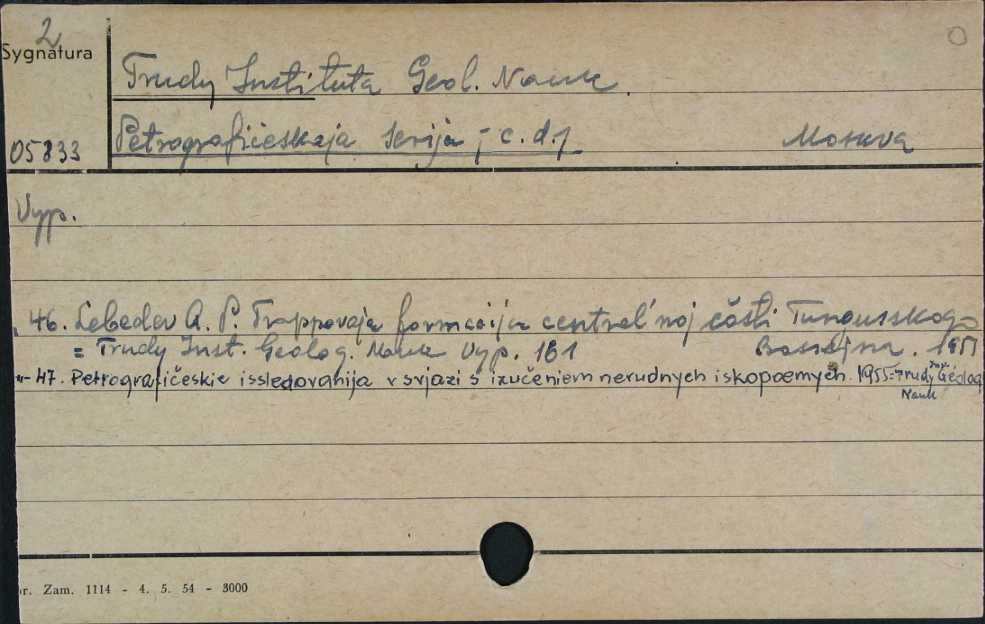 2
Sygnatura
Trudy Instituta Geol. Nauk.
05833 Petrografičeskaja serija; c.d.1 Moskva
Vyp.
46. Lebedev A. P. Trappovaja formacija central'noj časti Tungusskogo
= Trudy Inst. Geolog. Nauk Vyp. 161 Bassejna. 1951
47. Petrografičeskie issledovanija v svjazi s izučeniem nerudnych iskopaemych. 1955 = Trudy Geolog
Nauk
r. Zam. 1114 - 4. 5. 54 - 3000